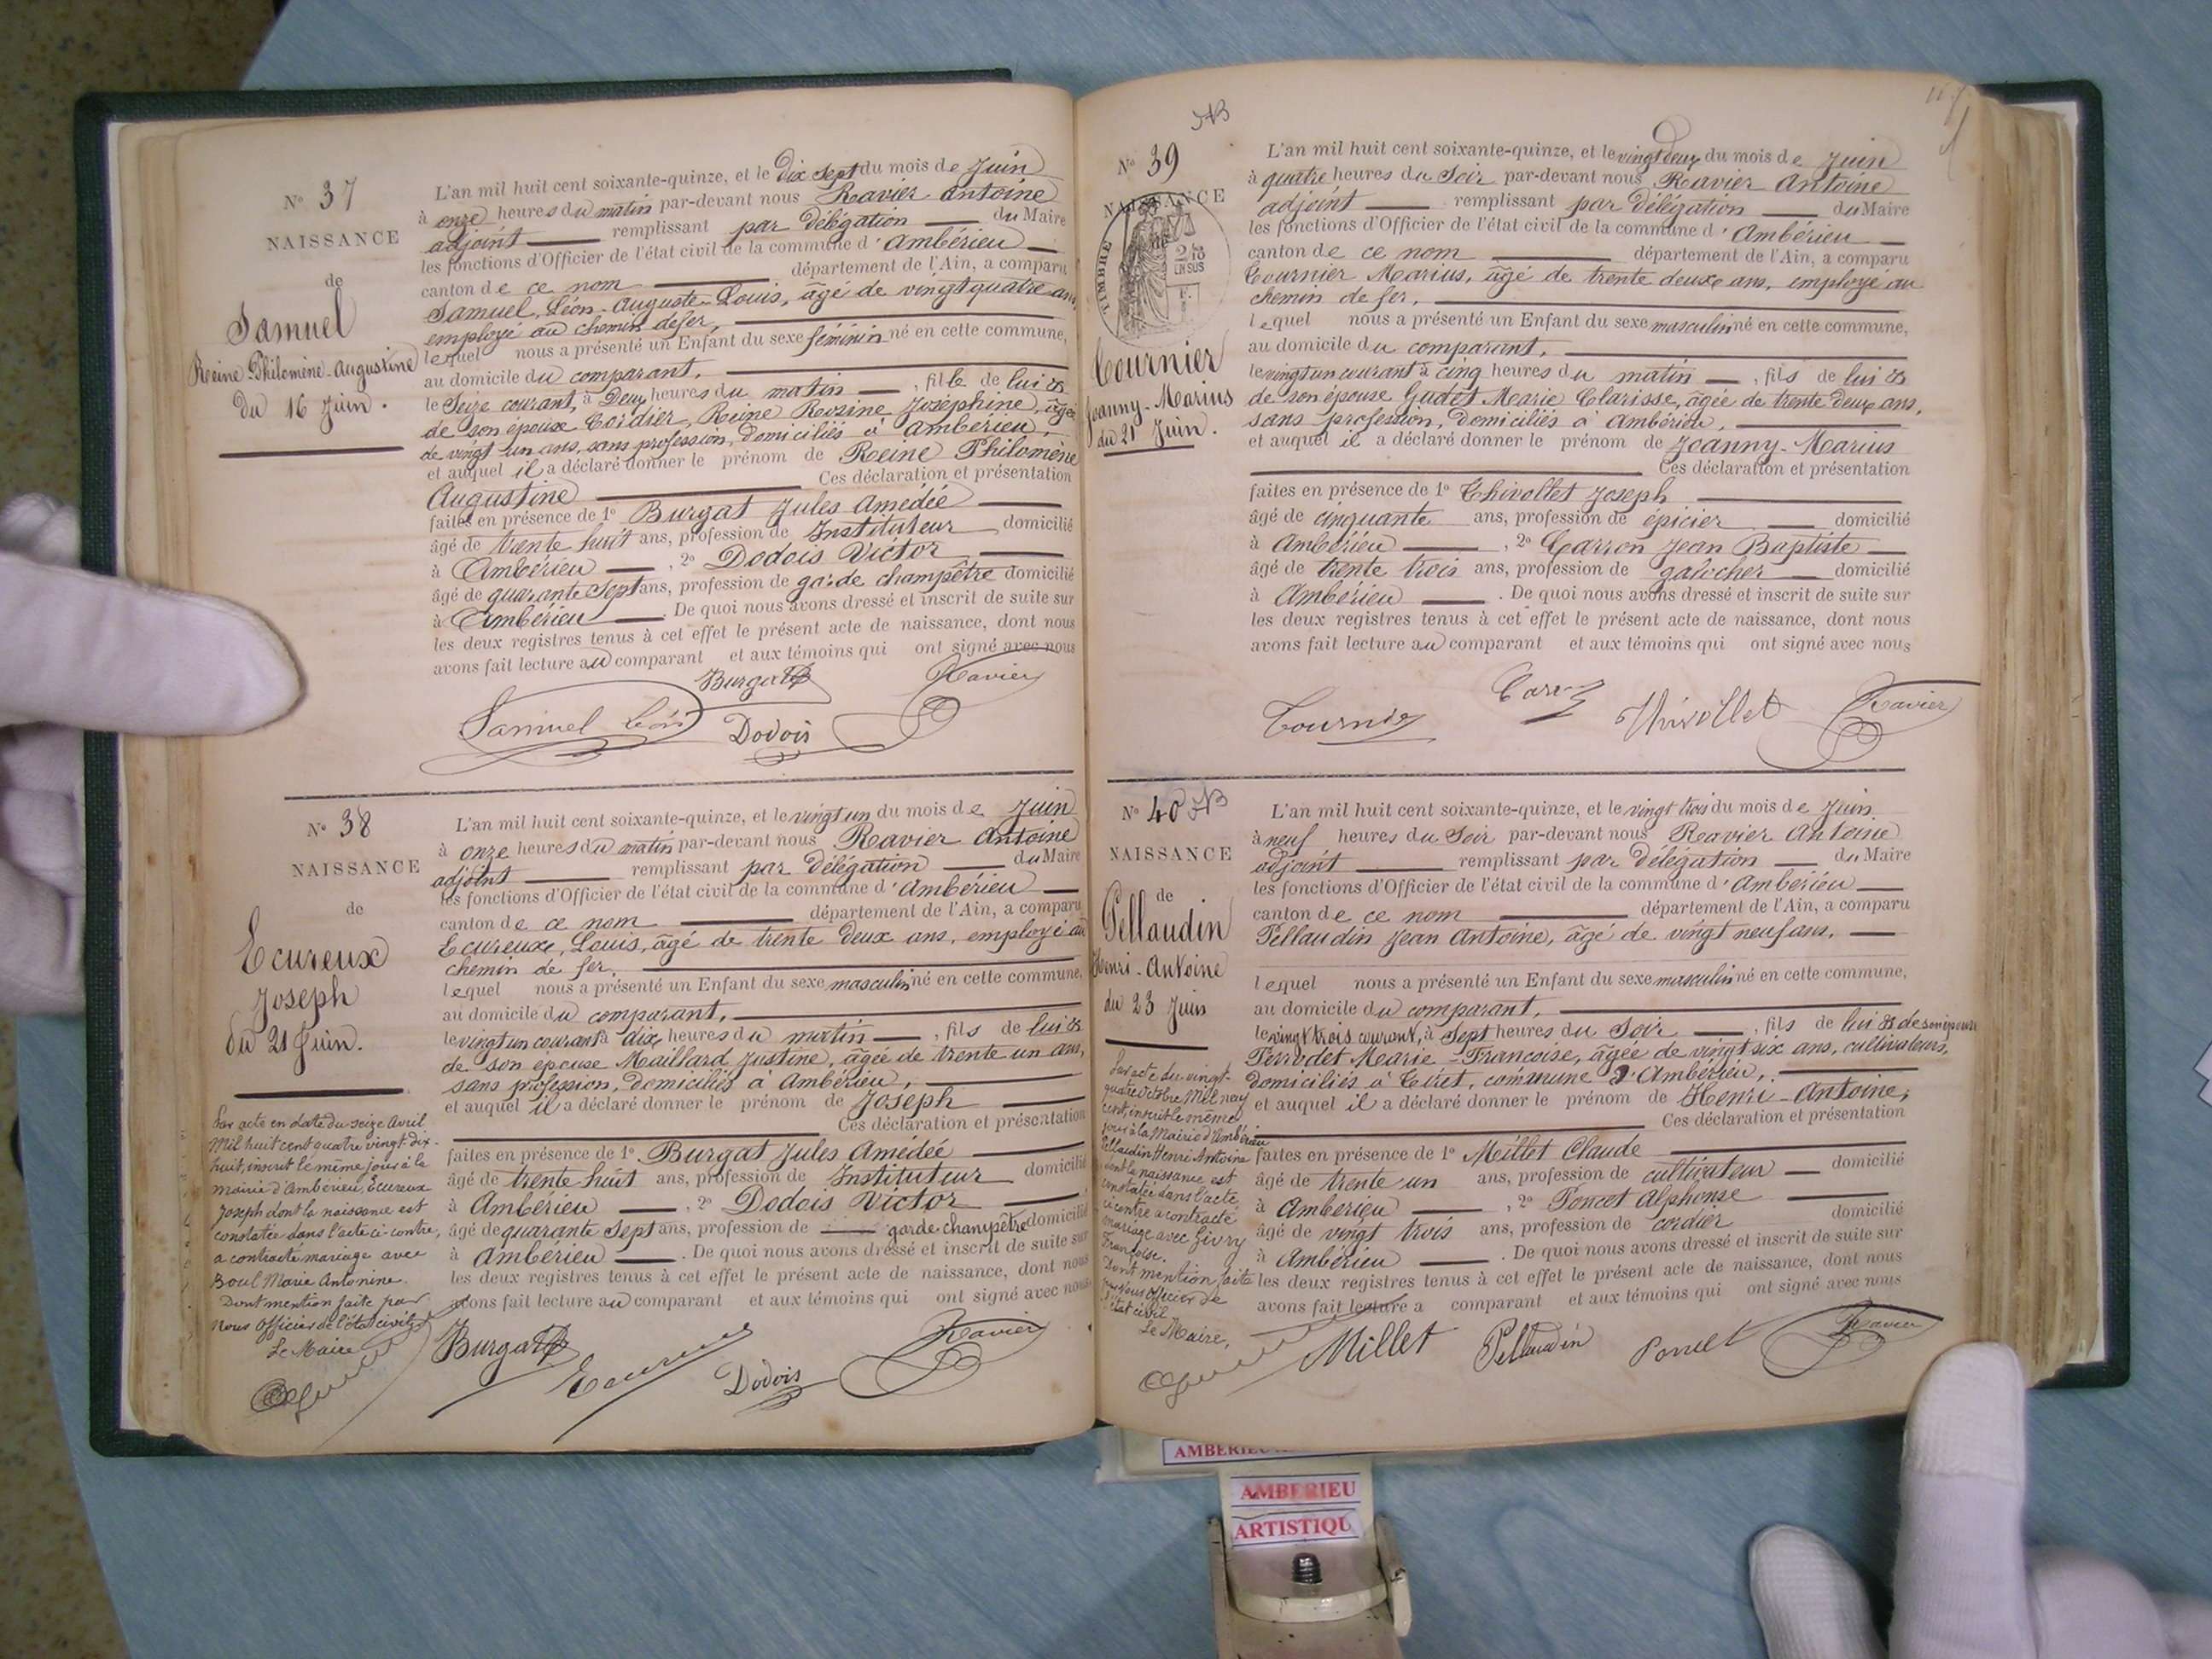 N° 37
NAISSANCE
de
Samuel
Reine-Philomène-Augustine
du 16 Juin.
L'an mil huit cent soixante-quinze, et le dix sept du mois de Juin
à onze heures du matin par-devant nous Ravier Antoine
adjoint remplissant par délégation du Maire
les fonctions d'Officier de l'état civil de la commune d'Ambérieu
canton de ce nom département de l'Ain, a comparu
Samuel, Léon-Auguste-Louis, âgé de vingt quatre ans,
employé au chemin de fer,
lequel nous a présenté un Enfant du sexe féminin né en cette commune,
au domicile du comparant,
le Seize courant, à Deux heures du matin, fille de lui &
de son épouse Cordier, Reine Rosine Joséphine, âgée
de vingt un ans, sans profession, domiciliés à Ambérieu,
et auquel il a déclaré donner le prénom de Reine Philomène
Augustine Ces déclaration et présentation
faites en présence de 1° Burgat Jules Amédée
âgé de trente huit ans, profession de Instituteur domicilié
à Ambérieu, 2° Dodois Victor
âgé de quarante Sept ans, profession de garde champêtre domicilié
à Ambérieu. De quoi nous avons dressé et inscrit de suite sur
les deux registres tenus à cet effet le présent acte de naissance, dont nous
avons fait lecture au comparant et aux témoins qui ont signé avec nous
Burgat Ravier
Samuel Léon Dodois
N° 38
NAISSANCE
de
Ecureux
Joseph
du 21 Juin.
Par acte en date du seize Avril
Mil huit cent quatre vingt dix-
huit, inscrit le même jour à la
mairie d'Ambérieu, Ecureux
Joseph dont la naissance est
constatée dans l'acte ci-contre,
a contracté mariage avec
Boul Marie Antonine.
Dont mention faite par
Nous Officier de l'état civil
Le Maire
L'an mil huit cent soixante-quinze, et le vingt un du mois de Juin
à onze heures du matin par-devant nous Ravier Antoine
adjoint remplissant par délégation du Maire
les fonctions d'Officier de l'état civil de la commune d'Ambérieu
canton de ce nom département de l'Ain, a comparu
Ecureuxe, Louis, âgé de trente deux ans, employé au
chemin de fer,
lequel nous a présenté un Enfant du sexe masculin né en cette commune,
au domicile du comparant,
le vingt un courant à dix heures du matin, fils de lui &
de son épouse Maillard Justine, âgée de trente un ans,
sans profession, domiciliés à Ambérieu,
et auquel il a déclaré donner le prénom de Joseph
Ces déclaration et présentation
faites en présence de 1° Burgat Jules Amédée
âgé de trente huit ans, profession de Instituteur domicilié
à Ambérieu, 2° Dodois Victor
âgé de quarante Sept ans, profession de garde champêtre domicilié
à Ambérieu. De quoi nous avons dressé et inscrit de suite sur
les deux registres tenus à cet effet le présent acte de naissance, dont nous
avons fait lecture au comparant et aux témoins qui ont signé avec nous
Burgat Ecureux Dodois Ravier
N° 39
NAISSANCE
TIMBRE
EN SUS
Cournier
Joanny-Marius
du 21 Juin.
L'an mil huit cent soixante-quinze, et le vingt deux du mois de Juin
à quatre heures du Soir par-devant nous Ravier Antoine
adjoint remplissant par délégation du Maire
les fonctions d'Officier de l'état civil de la commune d'Ambérieu
canton de ce nom département de l'Ain, a comparu
Cournier Marius, âgé de trente deux ans, employé au
chemin de fer,
lequel nous a présenté un Enfant du sexe masculin né en cette commune,
au domicile du comparant,
le vingt un courant à cinq heures du matin, fils de lui &
de son épouse Gudet Marie Clarisse, âgée de trente deux ans,
sans profession, domiciliés à Ambérieu,
et auquel il a déclaré donner le prénom de Joanny-Marius
Ces déclaration et présentation
faites en présence de 1° Thivollet Joseph
âgé de cinquante ans, profession de épicier domicilié
à Ambérieu, 2° Carron Jean Baptiste
âgé de trente trois ans, profession de galocher domicilié
à Ambérieu. De quoi nous avons dressé et inscrit de suite sur
les deux registres tenus à cet effet le présent acte de naissance, dont nous
avons fait lecture au comparant et aux témoins qui ont signé avec nous
Cournier Thivollet Ravier
N° 40
NAISSANCE
de
Pellaudin
Henri-Antoine
du 23 Juin
Par acte du vingt-
quatre Octobre Mil neuf
cent, inscrit le même
jour à la Mairie d'Ambérieu
Pellaudin Henri Antoine
dont la naissance est
constatée dans l'acte
ci contre a contracté
mariage avec Givry
Françoise.
Dont mention faite
par Nous Officier de
l'état civil
Le Maire,
L'an mil huit cent soixante-quinze, et le vingt trois du mois de Juin
à neuf heures du Soir par-devant nous Ravier Antoine
adjoint remplissant par délégation du Maire
les fonctions d'Officier de l'état civil de la commune d'Ambérieu
canton de ce nom département de l'Ain, a comparu
Pellaudin Jean Antoine, âgé de vingt neuf ans,
lequel nous a présenté un Enfant du sexe masculin né en cette commune,
au domicile du comparant,
le vingt trois courant, à Sept heures du Soir, fils de lui & de son épouse
Perrodet Marie-Francoise, âgée de vingt six ans, cultivateurs,
domiciliés à Tiret, commune d'Ambérieu,
et auquel il a déclaré donner le prénom de Henri-Antoine,
Ces déclaration et présentation
faites en présence de 1° Millet Claude
âgé de trente un ans, profession de cultivateur domicilié
à Ambérieu, 2° Poncet Alphonse
âgé de vingt trois ans, profession de cordier domicilié
à Ambérieu. De quoi nous avons dressé et inscrit de suite sur
les deux registres tenus à cet effet le présent acte de naissance, dont nous
avons fait lecture a comparant et aux témoins qui ont signé avec nous
Millet Pellaudin Poncet Ravier
AMBERIEU
ARTISTIQU